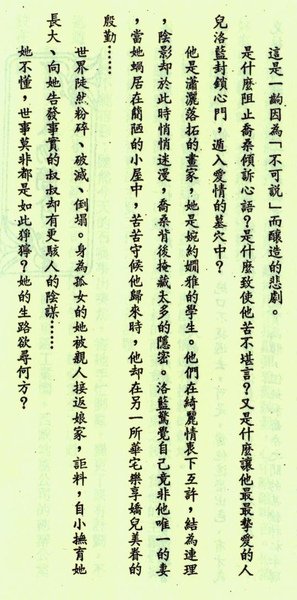 這是一齣因為「不可說」而釀造的悲劇。
是什麼阻止喬桑傾訴心語？是什麼致使他苦不堪言？又是什麼讓他最最摯愛的人
兒洛藍封鎖心門，遁入愛情的墓穴中？
他是瀟灑落拓的畫家，她是婉約嫺雅的學生。他們在綺麗情衷下互許，結為連理
，陰影却於此時悄悄迷漫，喬桑背後掩藏太多的隱密。洛藍驚覺自己竟非他唯一的妻
，當她蝸居在簡陋的小屋中，苦苦守候他歸來時，他却在另一所華宅樂享嬌兒美眷的
殷勤……
世界陡然粉碎、破滅、倒塌。身為孤女的她被親人接返娘家，詎料，自小撫育她
長大、向她告發事實的叔叔却有更駭人的陰謀……
她不懂，世事莫非都是如此猙獰？她的生路欲尋何方？